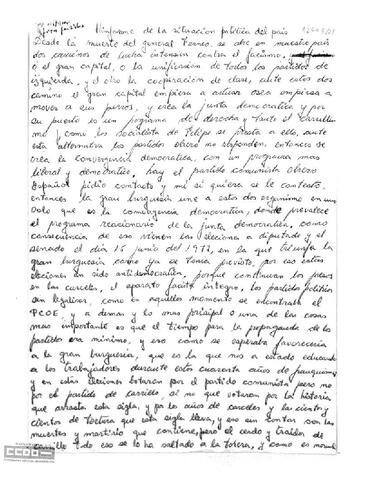 Hinforme de la situacion politica del pais
Desde la muerte del general Ferreo, se abre en nuestro pais
dos caminos de lucha intensiva contra el facismo,
o el gran capital, o la unificasion de todos los partidos de
izquierda, y el otro la cooperacion de clase, ante estos dos
camino el gran capital empiesa a actuar osea empiesa a
mover a sus perros, y crea la junta democratica y por
su puesto es un pograma de derecha y tanto el carrillu
me y como los socialista de Felipe se presta a ello, ante
esta alternativa los partidos obrero no responden, entonces se
crea la convergencia democratica, con un programa mas
liberal y democratico, hay el partido comunista obrero
Español pidio contacto y ni si quiera se le contesto,
entonces la gran burguesia une a estos dos organismo en uno
solo que es la convergencia democratica, donde prevalece
el programa reaccionario de la junta democratica, como
consecuencia de eso vienen las elecciones a diputado y el
senado el dia 15 junio del 1977, en la que triunfa la
gran burguesia como ya se tenia previsto, por eso estas
elecciones an sido antidemocratica, porque continuan los presos
en las carceles, el aparato facista integro, los partidos politicos
sin legalizar, como en aquellos momento se encontraba el
PCOE, y a demas y lo mas prisipal o una de las cosas
mas importante es que el tiempo para la propaganda de los
partidos era minimo, y eso como se esperaba favoreceria
a la gran burguesia, que es la que nos a estado educando
a los trabajadores durante estos cuarenta años de franquismo
y en estas elecciones votaron por el partido comunista pero no
por el partido de carrillo, si no que votaron por la historia
que arrastra esta sigla, y por los años de carceles y las cientos y
cientos de tortura que esta sigla lleva, y eso sin contar con las
muertes y martirio que contiene, pero el cerdo y traidor de
carrillo todo eso se lo ha saltado a la torera, y como es normal
CCOO